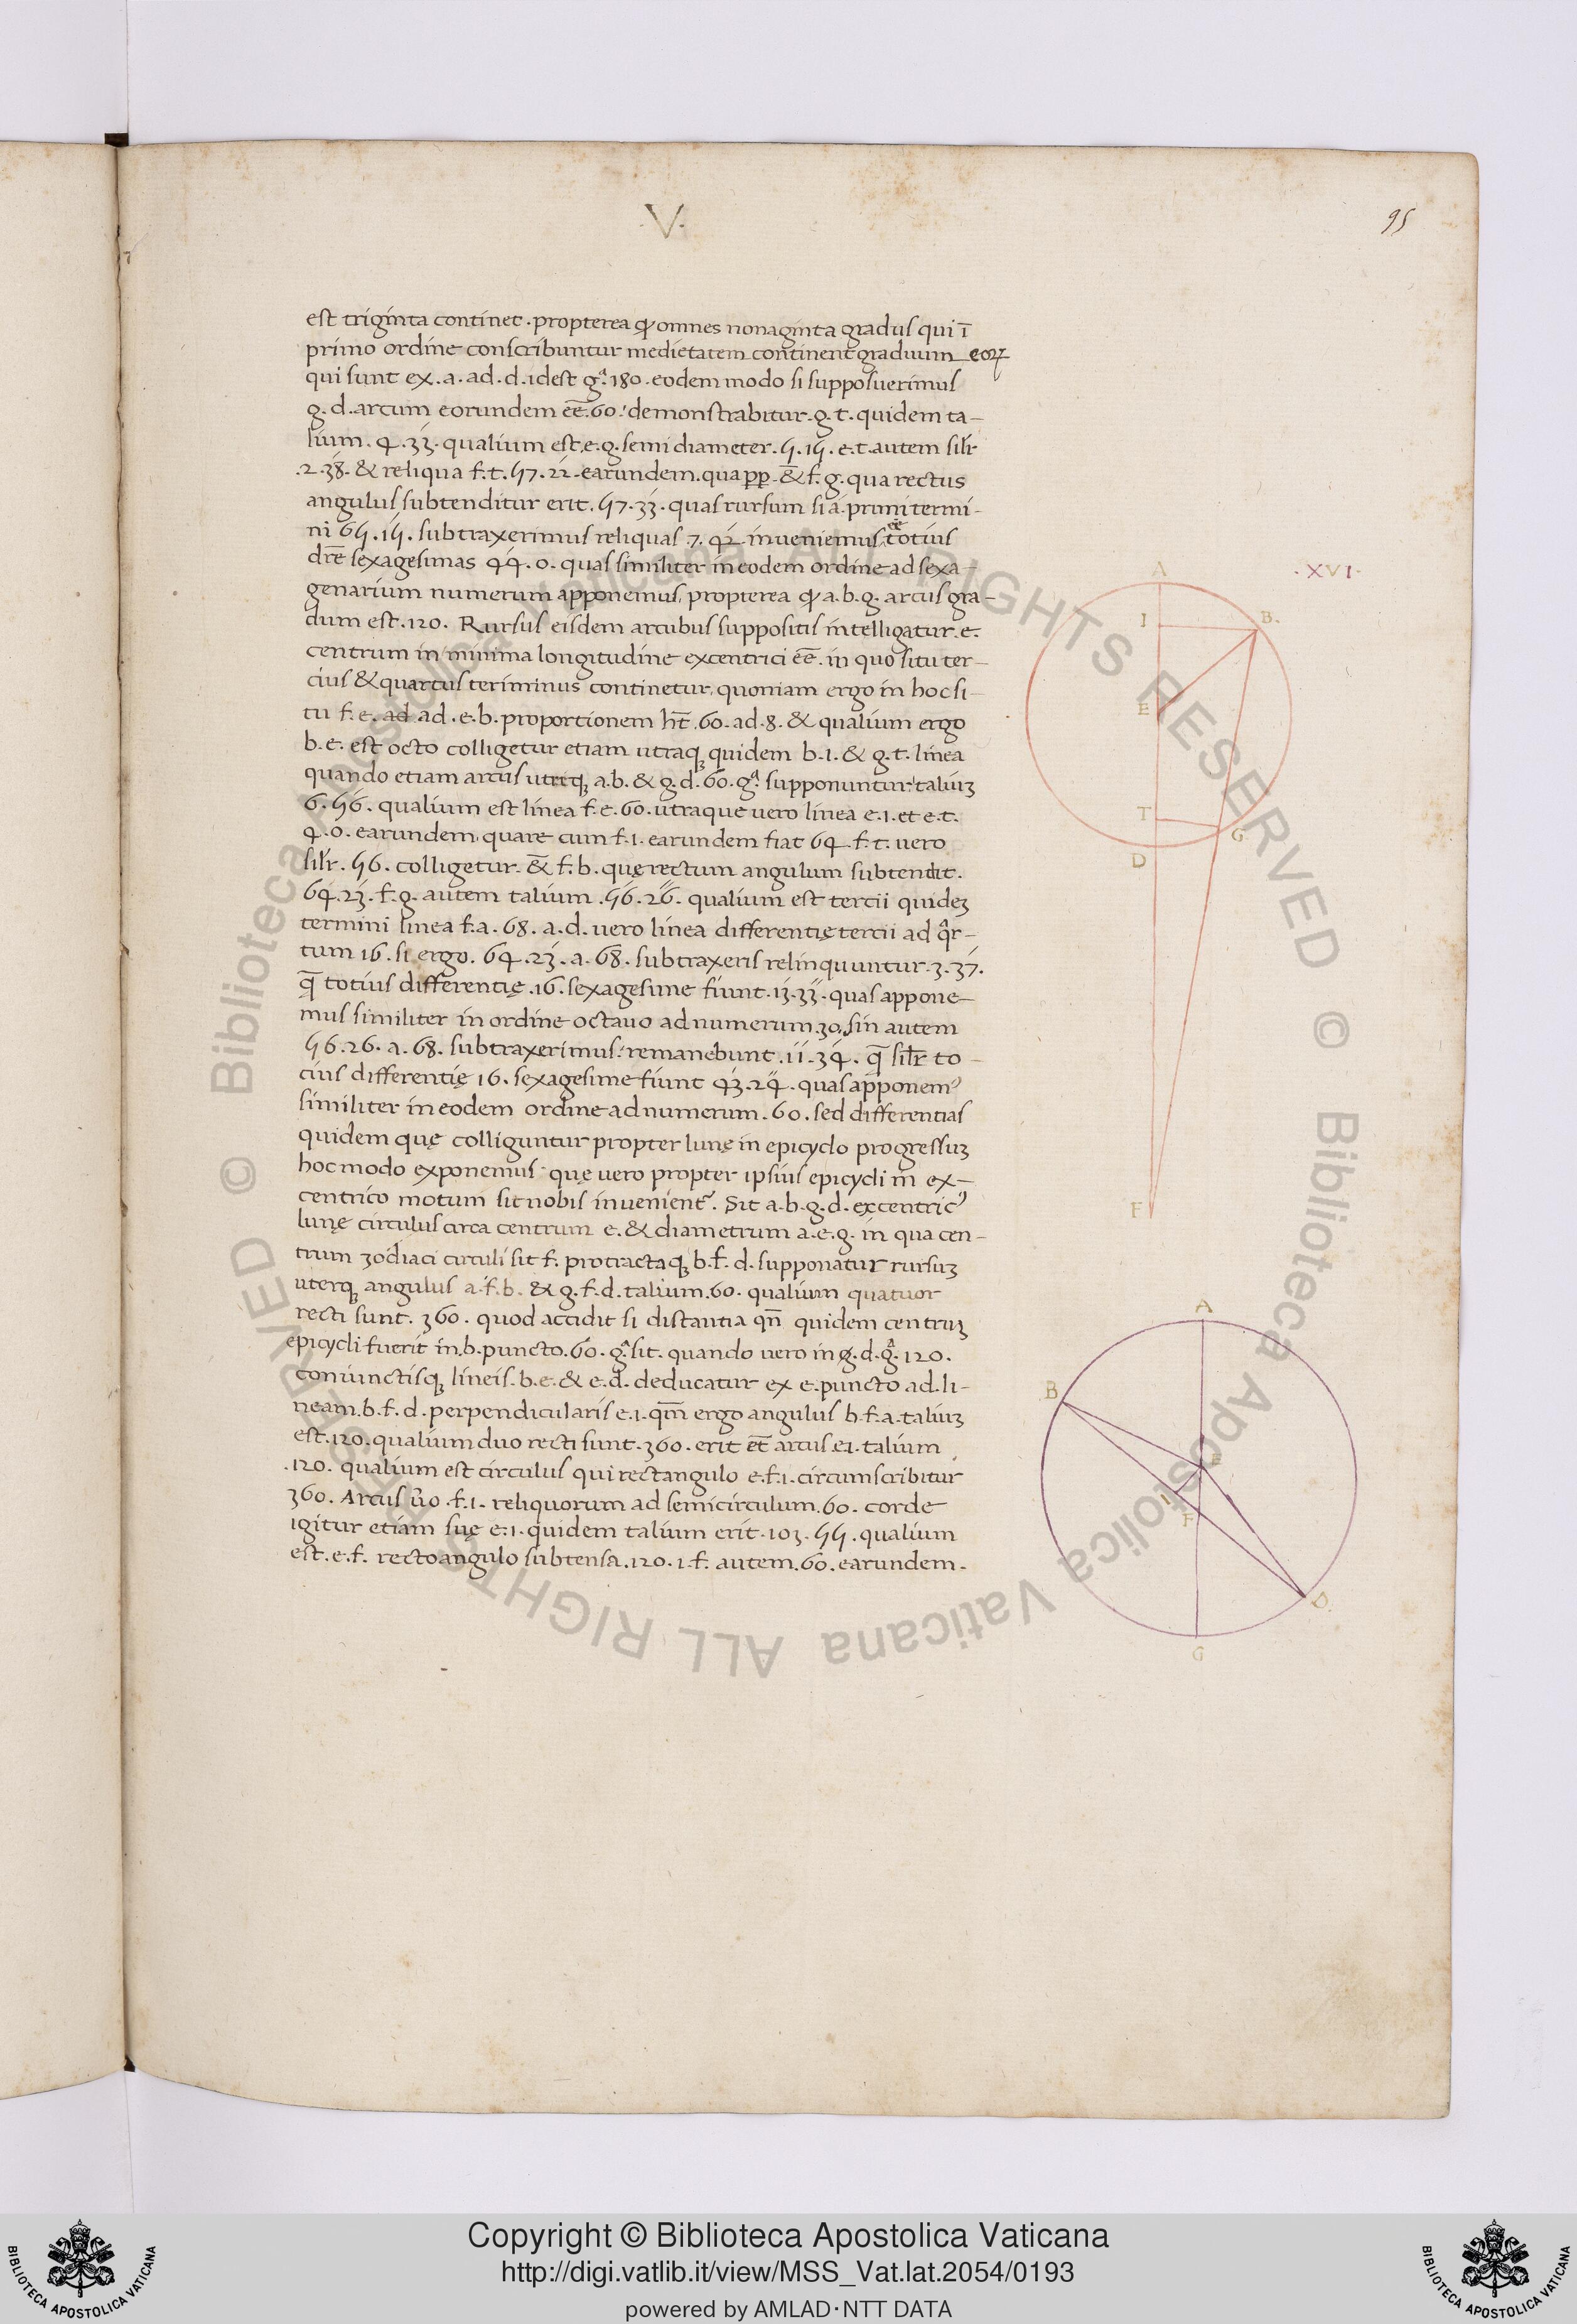 .V.
95
est triginta continet. propterea ꝙ omnes nonaginta gradus qui ī
primo ordine conscribuntur medietatem continent graduum eoꝝ
qui sunt ex .a. ad .d. idest gᵃ. 180. eodem modo si supposuerimus
g. d. arcum eorundem eē. 60. demonstrabitur .g. t. quidem ta-
lium. 4. 33. qualium est .e. g. semidiameter. 5. 15. e. t. autem silr
.2. 38. & reliqua f. t. 57. 22. earundem. qua pp. & f. g. qua rectus
angulus subtenditur erit. 57. 33. quas rursum si a primi termi-
ni 65. 15. subtraxerimus reliquas .7. 42. inveniemus eē totius
dr̄e sexagesimas 44. 0. quas similiter in eodem ordine ad sexa-
genarium numerum apponemus, propterea ꝙ a. b. g. arcus gra-
dum est. 120. Rursus eisdem arcubus suppositis intelligatur .e.
centrum in minima longitudine excentrici eē. in quo situ ter-
cius & quartus teriminus continetur, quoniam ergo in hoc si-
tu f. e. ad ad .e. b. proportionem ht̄. 60. ad .8. & qualium ergo
b. e. est octo colligetur etiam utraqꝫ quidem b. i. & g. t. linea
quando etiam arcus uterqꝫ a. b. & g. d. 60. gᵃ. supponuntur talíuꝫ
6. 56. qualium est linea f. e. 60. utraque vero linea e. i. et e. t.
4. 0. earundem, quare cum f. i. earundem fiat 64. f. t. vero
silr. 56. colligetur. & f. b. quę rectum angulum subtendit.
64. 23. f. g. autem talium .56. 26. qualium est tertii quideꝫ
termini linea f. a. 68. a. d. vero linea differentię tertii ad qr̄-
tum 16. si ergo. 64. 23. a. 68. subtraxeris relinquuntur .3. 37.
q̄ totius differentię .16. sexagesime fiunt .13. 33. quas appone-
mus similiter in ordine octavo ad numerum. 30, sin autem
56. 26. a. 68. subtraxerimus remanebunt .11. 34. q̄ silr to-
cius differentię 16. sexagesime fiunt 43. 24. quas apponemꝰ
similiter in eodem ordine ad numerum. 60. sed differentias
quidem quę colliguntur propter lunę in epicyclo progressuꝫ
hoc modo exponemus quę vero propter ipsius epicycli in ex-
centrico motum sit nobis invenient᷑. Sit a. b. g. d. excentricꝰ
lunę circulus circa centrum e. & diametrum a. e. g. in qua cen-
trum zodiaci circuli sit f. protractaqꝫ b. f. d. supponatur rursuꝫ
uterqꝫ angulus a. f. b. & g. f. d. talium. 60. qualium quatuor
recti sunt. 360. quod accidit si distantia qn̄ quidem centruꝫ
epicycli fuerit in .b. puncto. 60. gᵃ. sit. quando vero in g. d. gᵃ. 120.
coniunctisqꝫ lineis. b. e. & e. d. deducatur ex e. puncto ad. li-
neam. b. f. d. perpendicularis e. i. qm̄ ergo angulus b. f. a. taliuꝫ
est. 120. qualium duo recti sunt. 360. erit et̄ arcus e. i. talium
.120. qualium est circulus qui rectangulo e. f. i. circumscribitur
360. Arcus ūo .f. i. reliquorum ad semicirculum. 60. corde
igitur etiam suę e. i. quidem talium erit. 103. 55. qualium
est. e. f. recto angulo subtensa. 120. i. f. autem. 60. earundem.
.XVI.
A
I
B.
E
T
G
D
F
A
B
E
I
F
D.
G
© Biblioteca Apostolica Vaticana ALL RIGHTS RESERVED © Biblioteca Apostolica Vaticana ALL RIGHTS RESERVED
Copyright © Biblioteca Apostolica Vaticana
http://digi.vatlib.it/view/MSS_Vat.lat.2054/0193
powered by AMLAD·NTT DATA
BIBLIOTECA APOSTOLICA VATICANA
BIBLIOTECA APOSTOLICA VATICANA